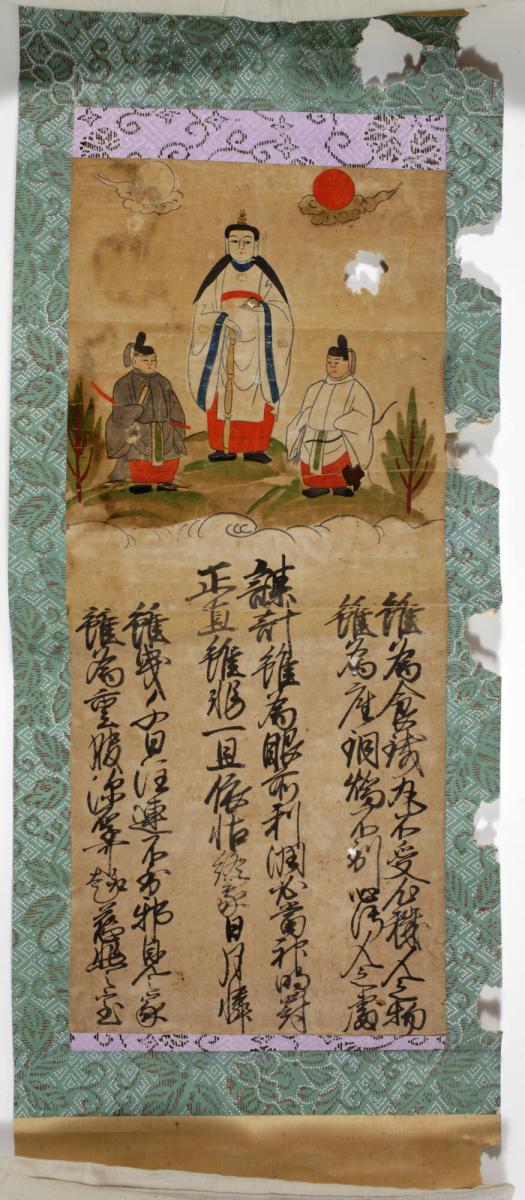 雖為食鐵丸不受心穢人之物
雖為座銅焔不到心濁人之處
謀計雖為眼前利潤必當神明罸
正直雖非一旦依怙終蒙日月憐
雖曳千日注連不到邪見之家
雖為重服深厚趣慈悲之室